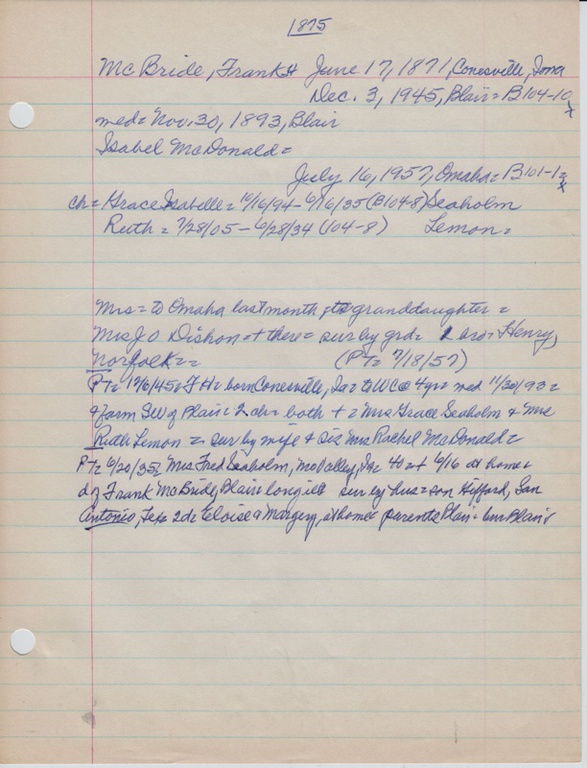 1875
McBride, Frank H June 17, 1871, Conesville, Iowa
Dec. 3, 1945, Blair = B104-10
x
med = Nov. 30, 1893, Blair
Isabel McDonald =
July 16, 1957, Omaha = B101-1 =
x
ch = Grace Isabelle = 10/16/94 - 6/16/35 (B104-8) Seaholm
Ruth = 7/28/05 - 6/28/34 (104-8) Lemon =
Mrs = to Omaha last month, to granddaughter =
Mrs J O Dishon = + there = sur by grd = bro = Henry,
Norfolk = = (PT = 7/18/57)
PT = 12/6/45 = F H = born Conesville, Ia = to WC @ 4 yr = med 11/30/93 =
& farm SW of Blair = 2 da = both + = Mrs Grace Seaholm & Mrs
Ruth Lemon = sur by wife & sis Mrs Rachel McDonald =
PT = 6/20/35 = Mrs Fred Seaholm, Mo Valley, Ia = 40 = + 6/16 at home =
d of Frank McBride, Blair = long ill sur by hus = son Hifford, San
Antonio, Tex = 2 d = Eloise & Margery, at home = parents Blair = bur Blair